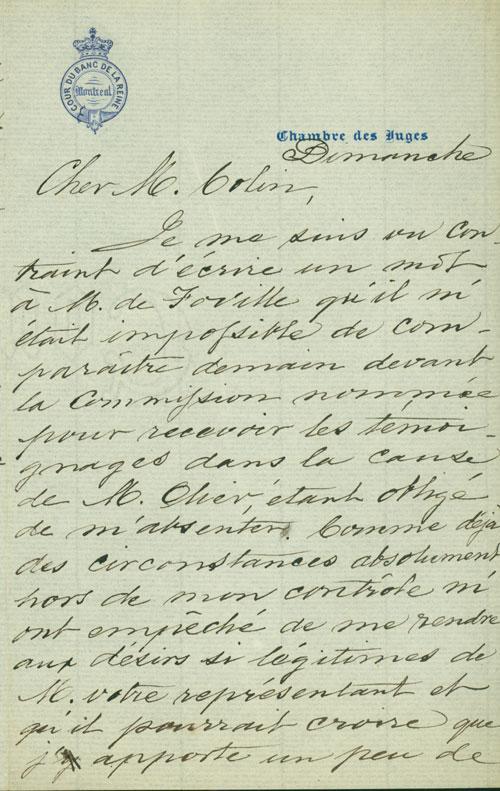 COUR DU BANC DE LA REINE
Montreal
Chambre des Juges
Dimanche
Cher M. Colin,
Je me suis vu con-
traint d'écrire un mot
à M. de Foville qu'il m'
était impossible de com-
paraître demain devant
la Commission nommée
pour recevoir les témoi-
gnages dans la cause
de M. Olier, étant obligé
de m'absenter. Comme déjà
des circonstances absolument
hors de mon contrôle m'
ont empêché de me rendre
aux désirs si légitimes de
M. votre représentant et
qu'il pourrait croire que
j'y apporte un peu de